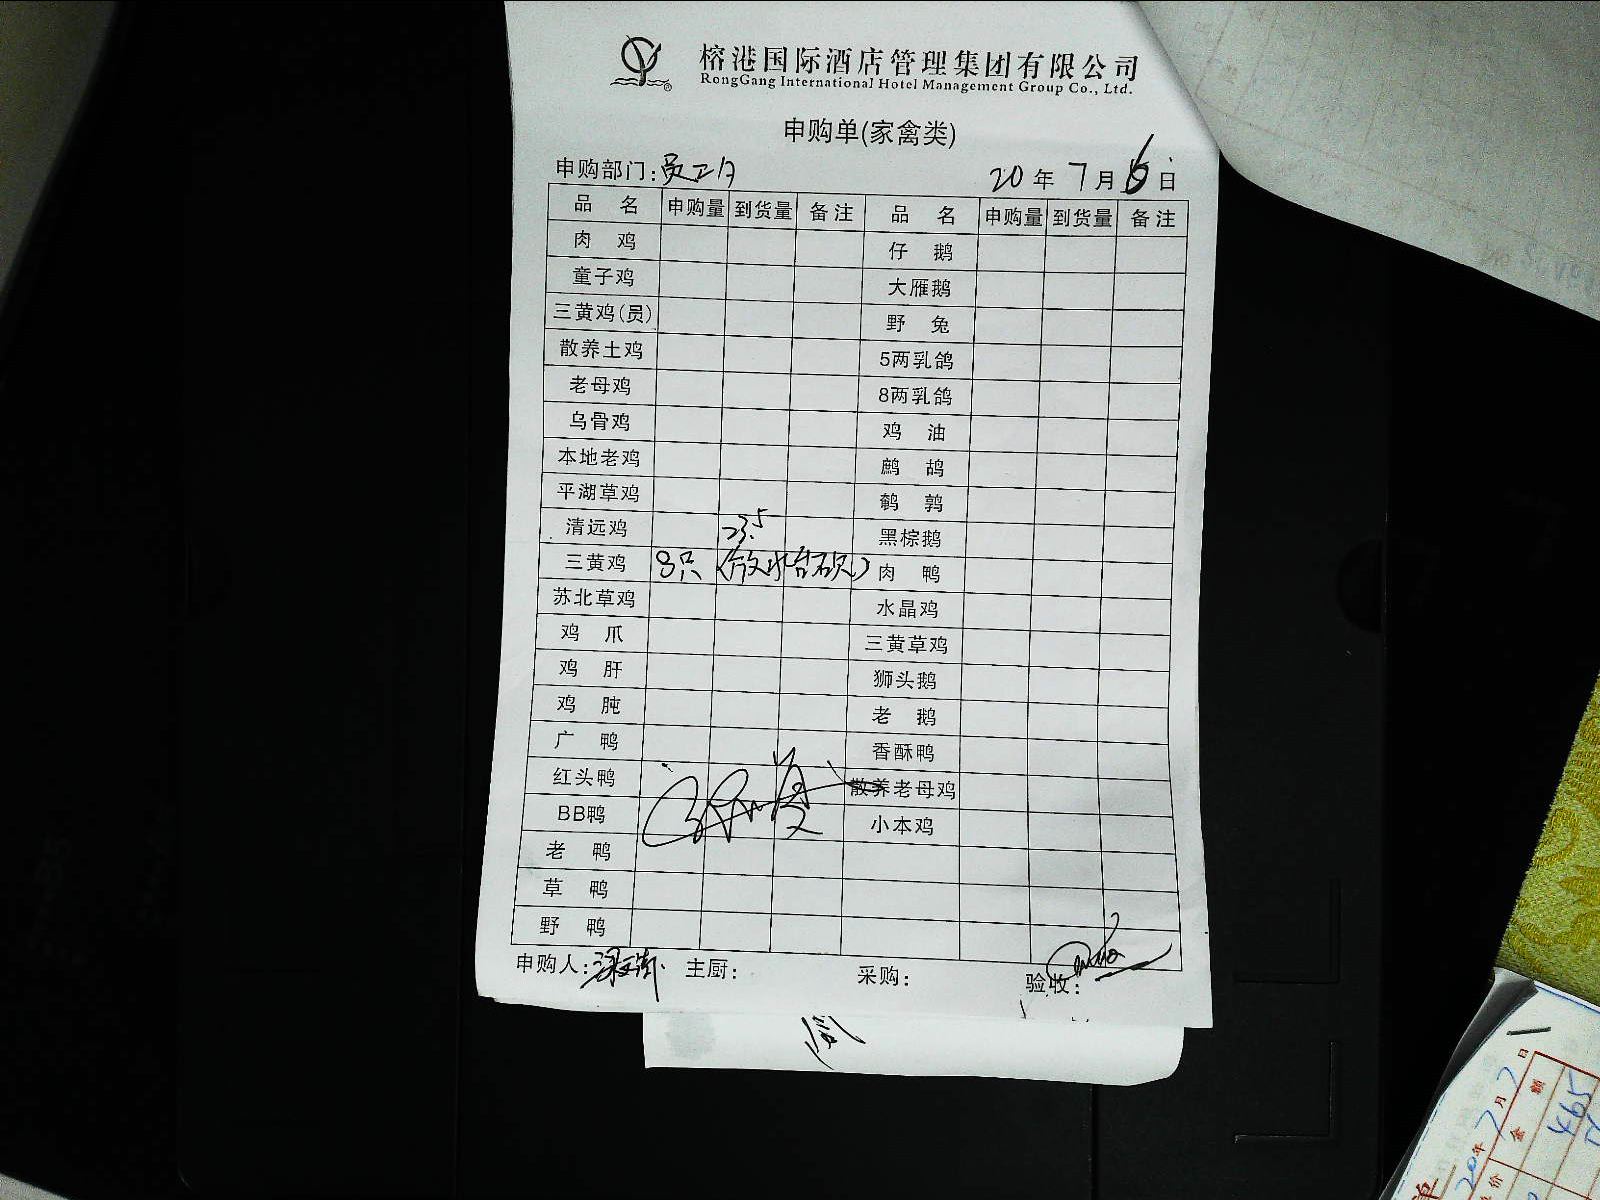 榕港国际酒店管理集团有限公司
RongGang International Hotel Management Group Co., Ltd.
申购单(家禽类)
申购部门: 20年7月6日
品名 申购量 到货量 备注 品名 申购量 到货量 备注
肉鸡 仔鹅
童子鸡 大雁鹅
三黄鸡(员) 野兔
散养土鸡 5两乳鸽
老母鸡 8两乳鸽
乌骨鸡 鸡油
本地老鸡 鹧鸪
平湖草鸡 鹌鹑
清远鸡 23.5 黑棕鹅
三黄鸡 8只 肉鸭
苏北草鸡 水晶鸡
鸡爪 三黄草鸡
鸡肝 狮头鹅
鸡肫 老鹅
广鸭 香酥鸭
红头鸭 散养老母鸡
BB鸭 小本鸡
老鸭
草鸭
野鸭
申购人: 主厨: 采购: 验收:
20年7月7日
金额
465
单
价